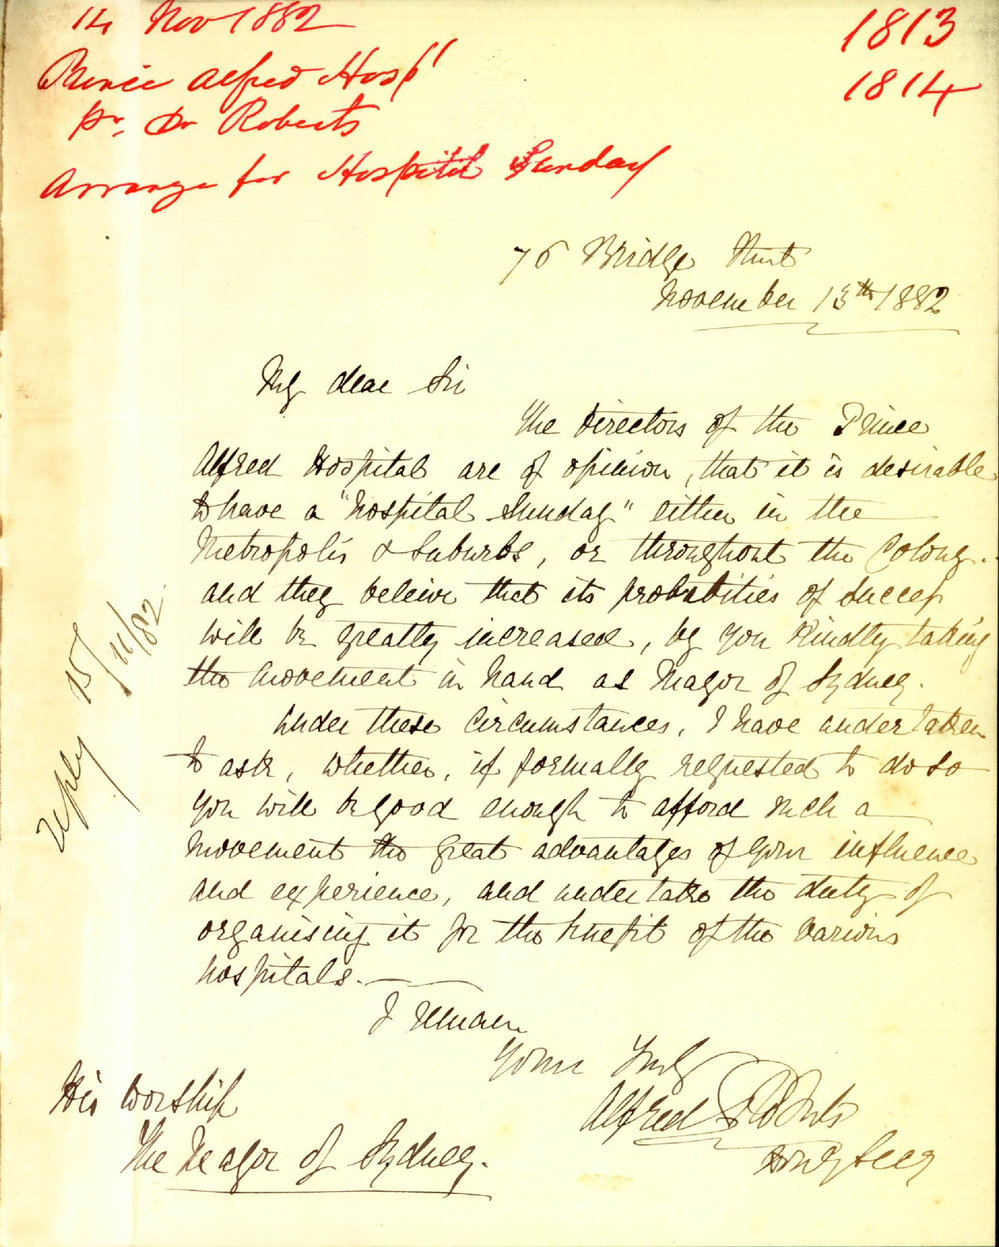 14 Nov 1882
Prince Alfred Hosp'l
pr. Dr Roberts
Arrange for Hospital Sunday
1813
1814
76 Bridge Street
November 13th 1882
My dear Sir
The Directors of the Prince
Alfred Hospital are of opinion, that it is desirable
to have a "Hospital Sunday" either in the
Metropolis & Suburbs, or throughout the Colony.
and they beleive that its probabilities of success
will be greatly increased, by you kindly taking
the movement in hand as Mayor of Sydney.
Under these circumstances, I have undertaken
to ask, whether, if formally requested to do so
you will be good enough to afford such a
movement the great advantages of your influence
and experience, and undertake the duty of
organising it for the benefit of the various
hospitals.
I remain
Yours truly
Alfred Roberts
Hony Secy
His Worship
The Mayor of Sydney.
Reply 15/11/82